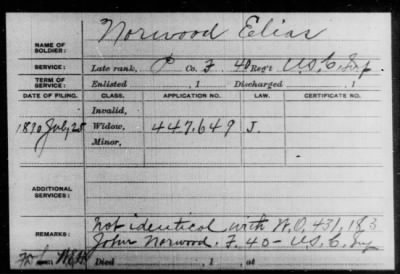 Norwood Elias
NAME OF SOLDIER:
SERVICE: Late rank, P Co. F. 40 Reg't U.S.C. Inf.
TERM OF SERVICE: Enlisted , 1 Discharged , 1
DATE OF FILING. CLASS. APPLICATION NO. LAW. CERTIFICATE NO.
Invalid,
1890 July 25 Widow, 447,649 J.
Minor,
ADDITIONAL SERVICES:
REMARKS: not identical with W.O. 431,183
John Norwood. F. 40 – U.S.C. Inf
Died , 1 , at